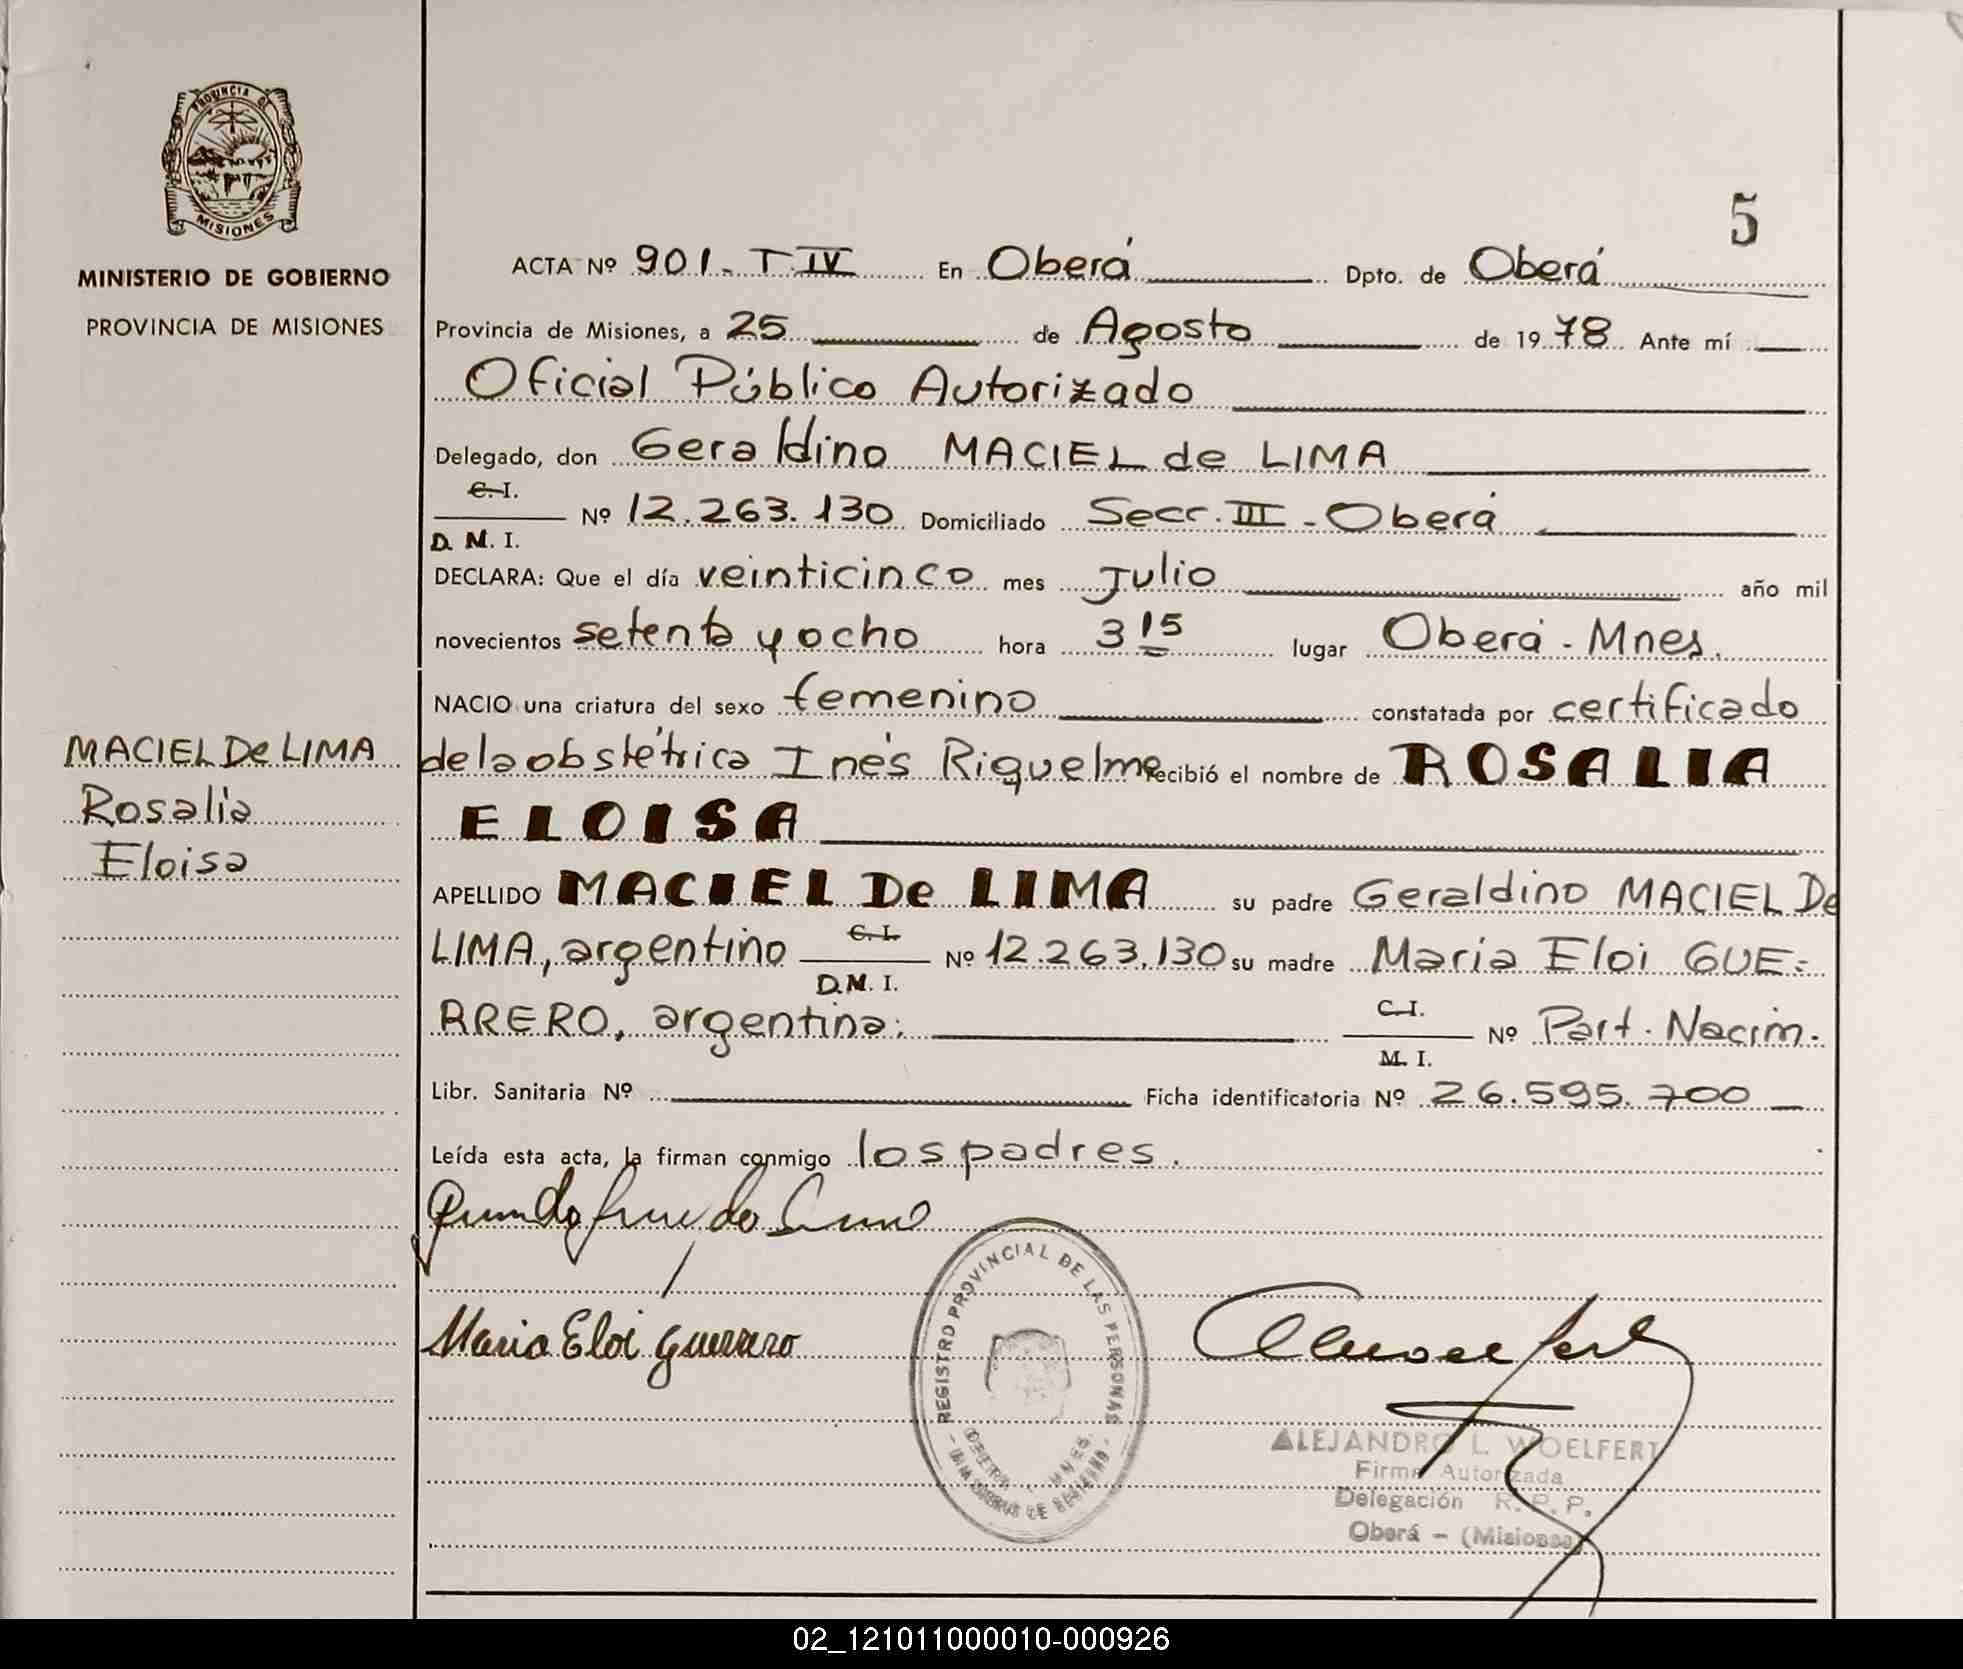 PROVINCIA DE
MISIONES
MINISTERIO DE GOBIERNO
PROVINCIA DE MISIONES
MACIEL De LIMA
Rosalia
Eloisa
5
ACTA Nº 901. T IV En Oberá Dpto. de Oberá
Provincia de Misiones, a 25 de Agosto de 1978 Ante mí
Oficial Público Autorizado
Delegado, don Geraldino MACIEL de LIMA
C. I.
Nº 12.263.130 Domiciliado Secc. III - Oberá
D. M. I.
DECLARA: Que el día veinticinco mes Julio año mil
novecientos setenta y ocho hora 3 15 lugar Oberá - Mnes.
NACIO una criatura del sexo femenino constatada por certificado
de la obstétrica Inés Riquelme recibió el nombre de ROSALIA
ELOISA
APELLIDO MACIEL De LIMA su padre Geraldino MACIEL De
LIMA, argentino C. I. D.M. I. Nº 12.263.130 su madre Maria Eloi GUE=
RRERO, argentina; C. I. M. I. Nº Part. Nacim.
Libr. Sanitaria Nº Ficha identificatoria Nº 26.595.700
Leída esta acta, la firman conmigo los padres.
Maria Eloi Guerrero
REGISTRO PROVINCIAL DE LAS PERSONAS
OBERA - MNES.
ALEJANDRO L. WOELFERT
Firma Autorizada
Delegación R. P. P.
Oberá - (Misiones)
02_121011000010-000926